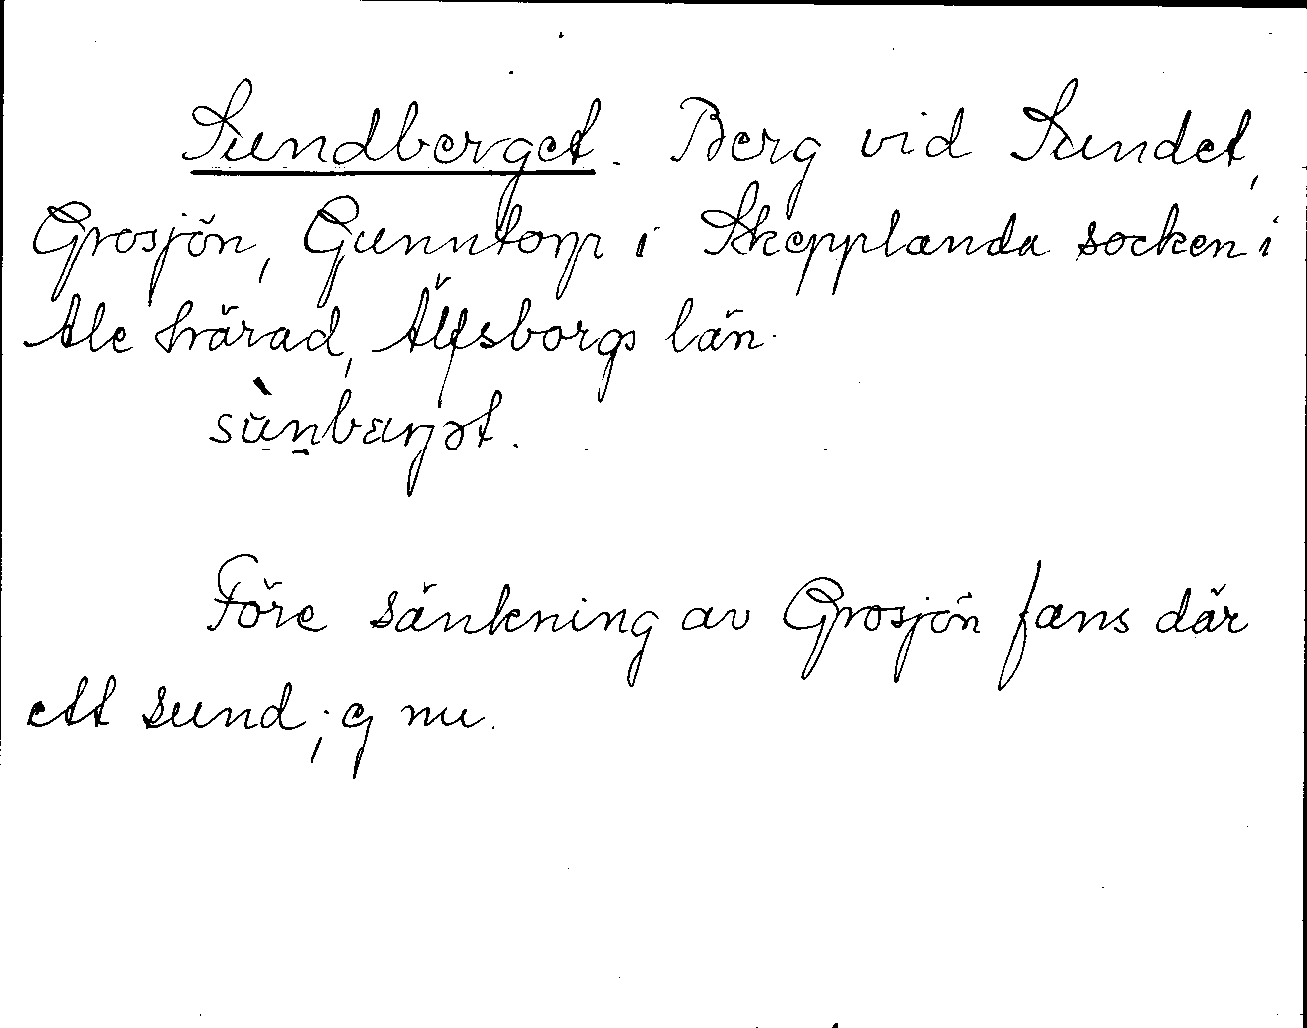 Sundberget. Berg vid Sundet,
Grosjön, Gunntorp i Skepplanda socken i
Ale härad, Älfsborgs län.
sùnbærjət.
Före sänkning av Grosjön fans där
ett sund; ej nu.